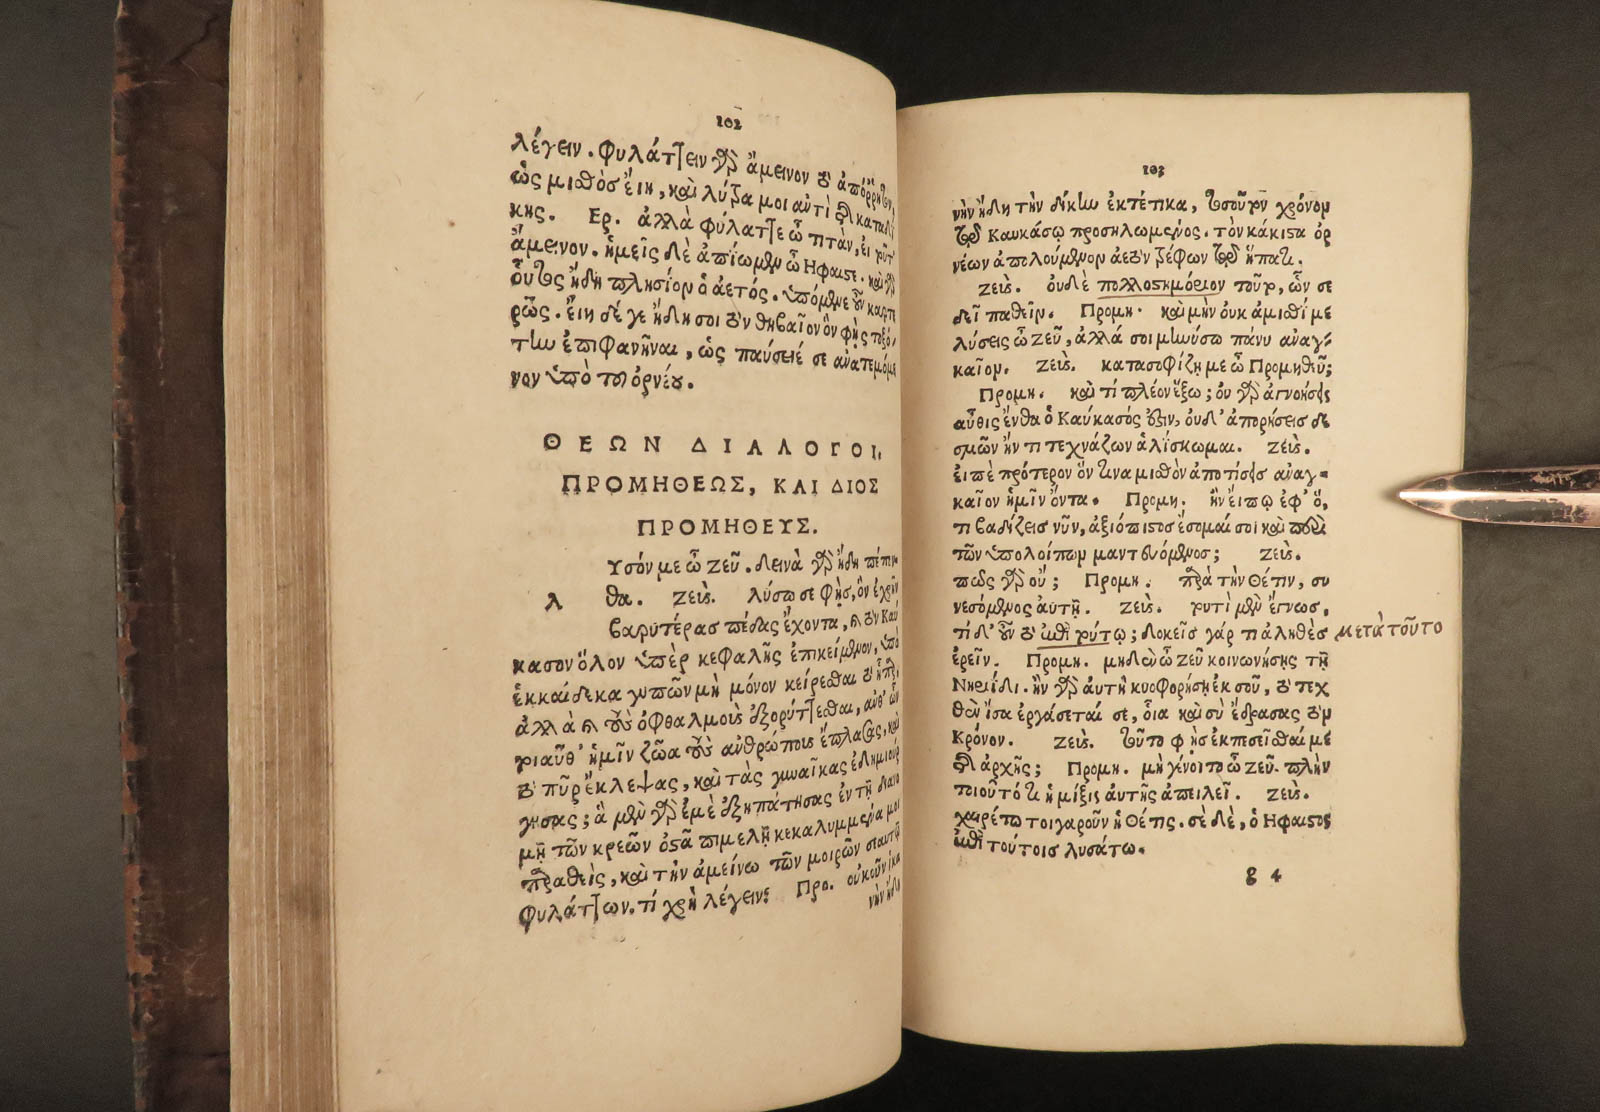 102
λέγειν. φυλάττειν γὰρ ἄμεινον τὰ ἀπόρρητα,
ὡς μισθὸς εἴη, καὶ λύσα μοι αὐτὶ τῆς καταδί
κης. Ερ. ἀλλὰ φύλαττε ὦ τιτὰν, εἰ τοῦτ'
ἄμεινον. ἡμεῖς δὲ ἀπίωμεν ὦ Ηφαιστε. καὶ γὰρ
οὗτος ἤδη πλησίον ὁ ἀετός. ὑπόμενε οὖν καρτε
ρῶς. εἴη δέ γε ἤδη σοι τὸν θηβαῖον ὃν φῂς τοξό,
την ἐπιφανῆναι, ὡς παύσειέ σε ἀνατεμόμε
νον ὑπὸ τοῦ ὀρνέου.
ΘΕΩΝ ΔΙΑΛΟΓΟΙ,
ΠΡΟΜΗΘΕΩΣ, ΚΑΙ ΔΙΟΣ
ΠΡΟΜΗΘΕΥΣ.
Υσόν με ὦ Ζεῦ. δεινὰ γὰρ ἤδη πέπον-
λ θα. Ζεὺς. λύσω σε φῂς, ὃν ἐχρῆν
βαρυτέρας πέδας ἔχοντα, καὶ τὸν Καύ
κασον ὅλον ὑπὲρ κεφαλῆς ἐπικείμενον, ὑπὸ
ἑκκαίδεκα γυπῶν μὴ μόνον κείρεσθαι τὸ ἧπαρ,
ἀλλὰ καὶ τοὺς ὀφθαλμοὺς ἐξορύττεσθαι, ἀνθ' ὧν
τοιαῦθ' ἡμῖν ζῶα τοὺς ἀνθρώπους ἔπλασας, καὶ
τὸ πῦρ ἔκλεψας, καὶ τὰς γυναῖκας ἐδημιούρ
γησας; ἃ μὲν γὰρ ἐμὲ ἐξηπάτησας ἐν τῇ διανο
μῇ τῶν κρεῶν ὀστᾶ πιμελῇ κεκαλυμμένα μοι
παραθεὶς, καὶ τὴν ἀμείνω τῶν μοιρῶν σαυτῷ
φυλάττων. τί χρὴ λέγειν; Προ. οὐκοῦν ἱκα
νὴν ἤδη
103
νὴν ἤδη τὴν δίκην ἐκτέτικα, τοσοῦτον χρόνον
τῷ Καυκάσῳ προσηλωμένος. τὸν κάκιστα ὀρ
νέων ἀπολούμενον ἀετὸν τρέφων τῷ ἥπατι.
Ζεὺς. οὐδὲ πολλοστημόριον τοῦτο, ὧν σε
δεῖ παθεῖν. Προμη. καὶ μὴν οὐκ ἀμισθί με
λύσεις ὦ Ζεῦ, ἀλλά σοι μηνύσω πάνυ ἀναγ-
καῖον. Ζεὺς. κατασοφίζῃ με ὦ Προμηθεῦ;
Προμη. καὶ τί πλέον ἕξω; οὐ γὰρ ἀγνοήσεις
αὖθις ἔνθα ὁ Καύκασός ἐστιν, οὐδ' ἀπορήσεις δε
σμῶν ἤν τι τεχνάζων ἁλίσκωμαι. Ζεὺς.
εἰπὲ πρότερον ὅντινα μισθὸν ἀποτίσεις ἀναγ-
καῖον ἡμῖν ὄντα. Προμη. ἢν εἴπω ἐφ' ὅ,
τι βαδίζεις νῦν, ἀξιόπιστος ἔσομαί σοι καὶ περὶ
τῶν ὑπολοίπων μαντευόμενος; Ζεὺς.
πῶς γὰρ οὔ; Προμη. παρὰ τὴν Θέτιν, συ
νεσόμενος αὐτῇ. Ζεὺς. τουτὶ μὲν ἔγνως,
τί δ' οὖν τὸ ἐπὶ τούτῳ; δοκεῖς γάρ τι ἀληθὲς μετὰ τοῦτο
ἐρεῖν. Προμη. μηδὲν ὦ Ζεῦ κοινωνήσῃς τῇ
Νηρεΐδι. ἢν γὰρ αὐτὴ κυοφορήσῃ ἐκ σοῦ, τὸ τεχ
θὲν ἴσα ἐργάσεταί σε, οἷα καὶ σὺ ἔδρασας τὸν
Κρόνον. Ζεὺς. τοῦτο φῂς ἐκπεσεῖσθαί με
τῆς ἀρχῆς; Προμη. μὴ γένοιτο ὦ Ζεῦ. πλὴν
τοιοῦτό τι ἡ μίξις αὐτῆς ἀπειλεῖ. Ζεὺς.
χαιρέτω τοιγαροῦν ἡ Θέτις. σὲ δὲ, ὁ Ηφαιστος
ἐπὶ τούτοις λυσάτω.
g 4